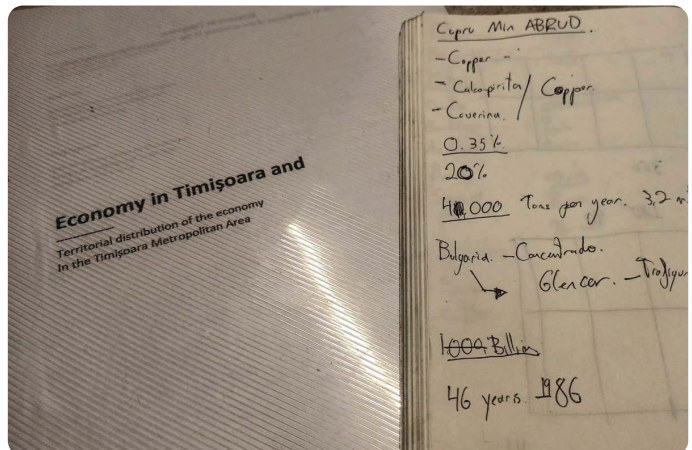 Economy in Timişoara and
Territorial distribution of the economy
In the Timişoara Metropolitan Area
Cupru Min ABRUD.
- Copper -
- Calcopirita / Copper.
- Coverina.
0.35%
20%
40,000 Tons per year. 3,2
Bulgaria. - Concentrado.
Glencor. - Trafigur
1004 Billion
46 years. 1986